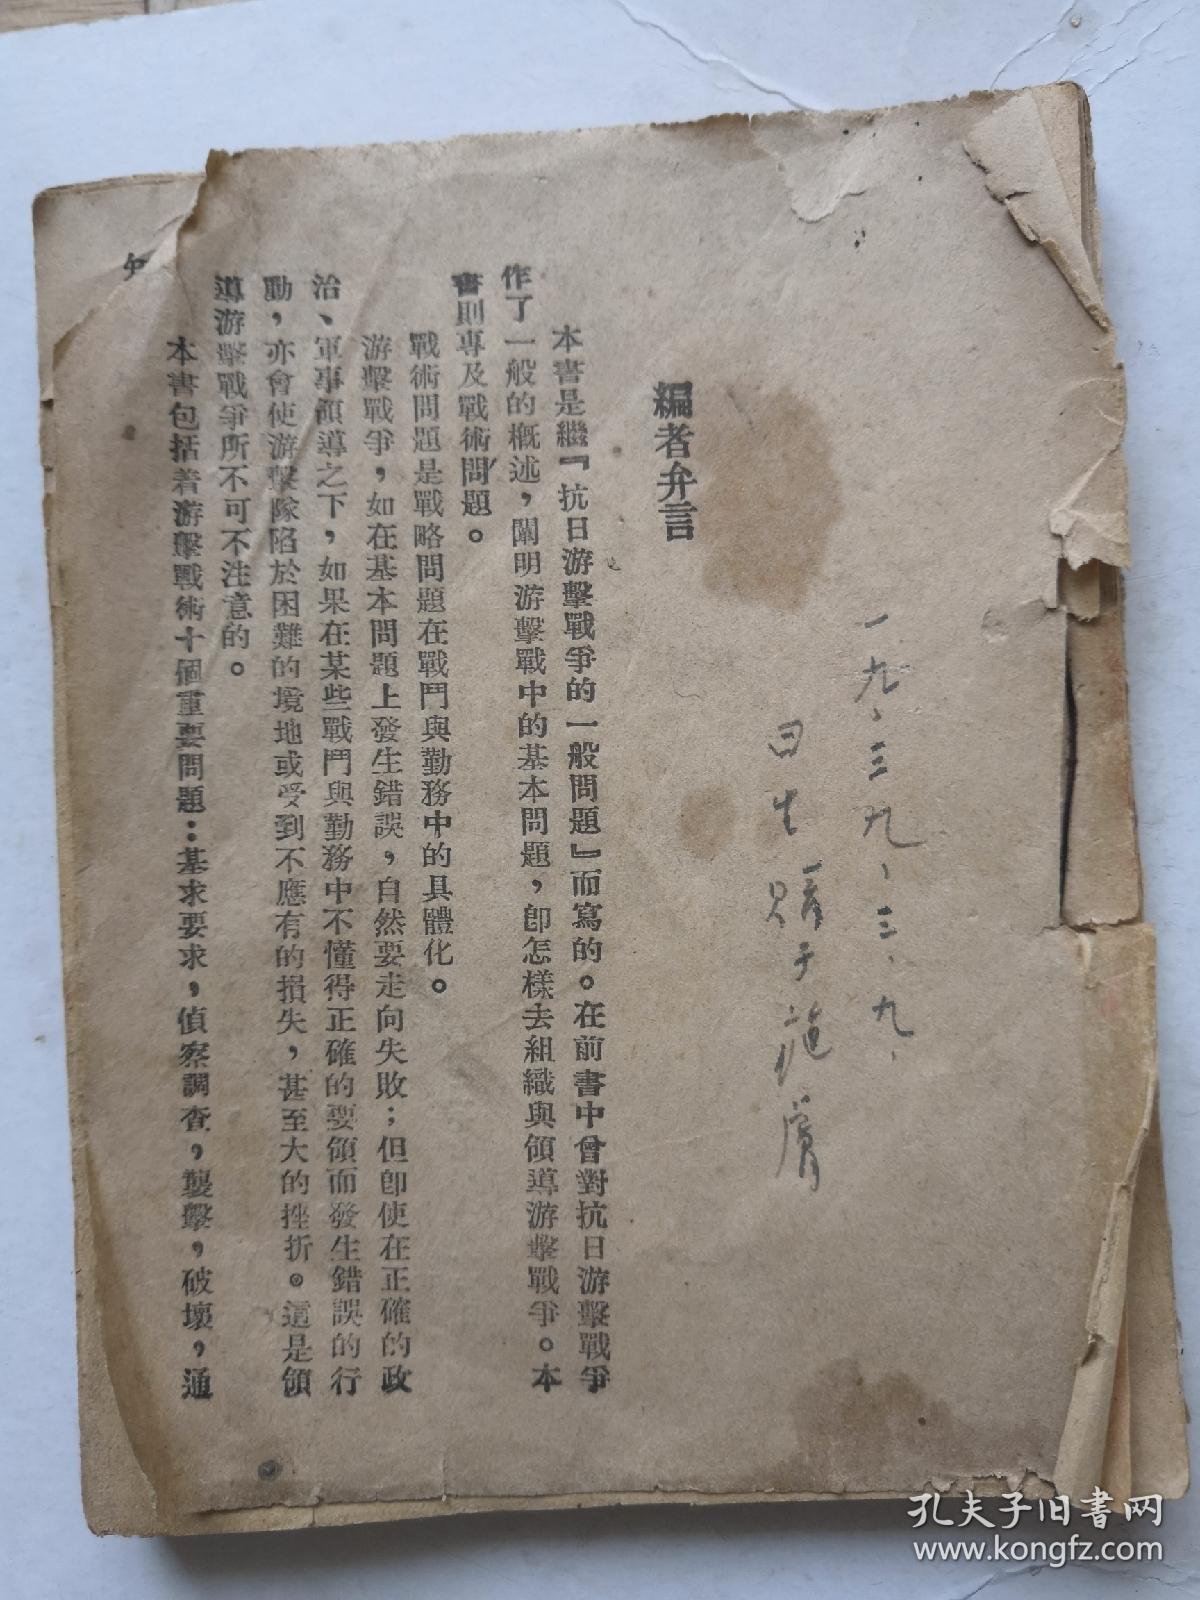 一九、三九、三、九、
編者弁言
本書是繼『抗日游擊戰爭的一般問題』而寫的。在前書中曾對抗日游擊戰爭
作了一般的概述，闡明游擊戰中的基本問題，卽怎樣去組織與領導游擊戰爭。本
書則專及戰術問題。
戰術問題是戰略問題在戰鬥與勤務中的具體化。
游擊戰爭，如在基本問題上發生錯誤，自然要走向失敗；但卽使在正確的政
治、軍事領導之下，如果在某些戰鬥與勤務中不懂得正確的要領而發生錯誤的行
動，亦會使游擊隊陷於困難的境地或受到不應有的損失，甚至大的挫折。這是領
導游擊戰爭所不可不注意的。
本書包括着游擊戰術十個重要問題：基求要求，偵察調查，襲擊，破壞，通
孔夫子旧书网
www.kongfz.com